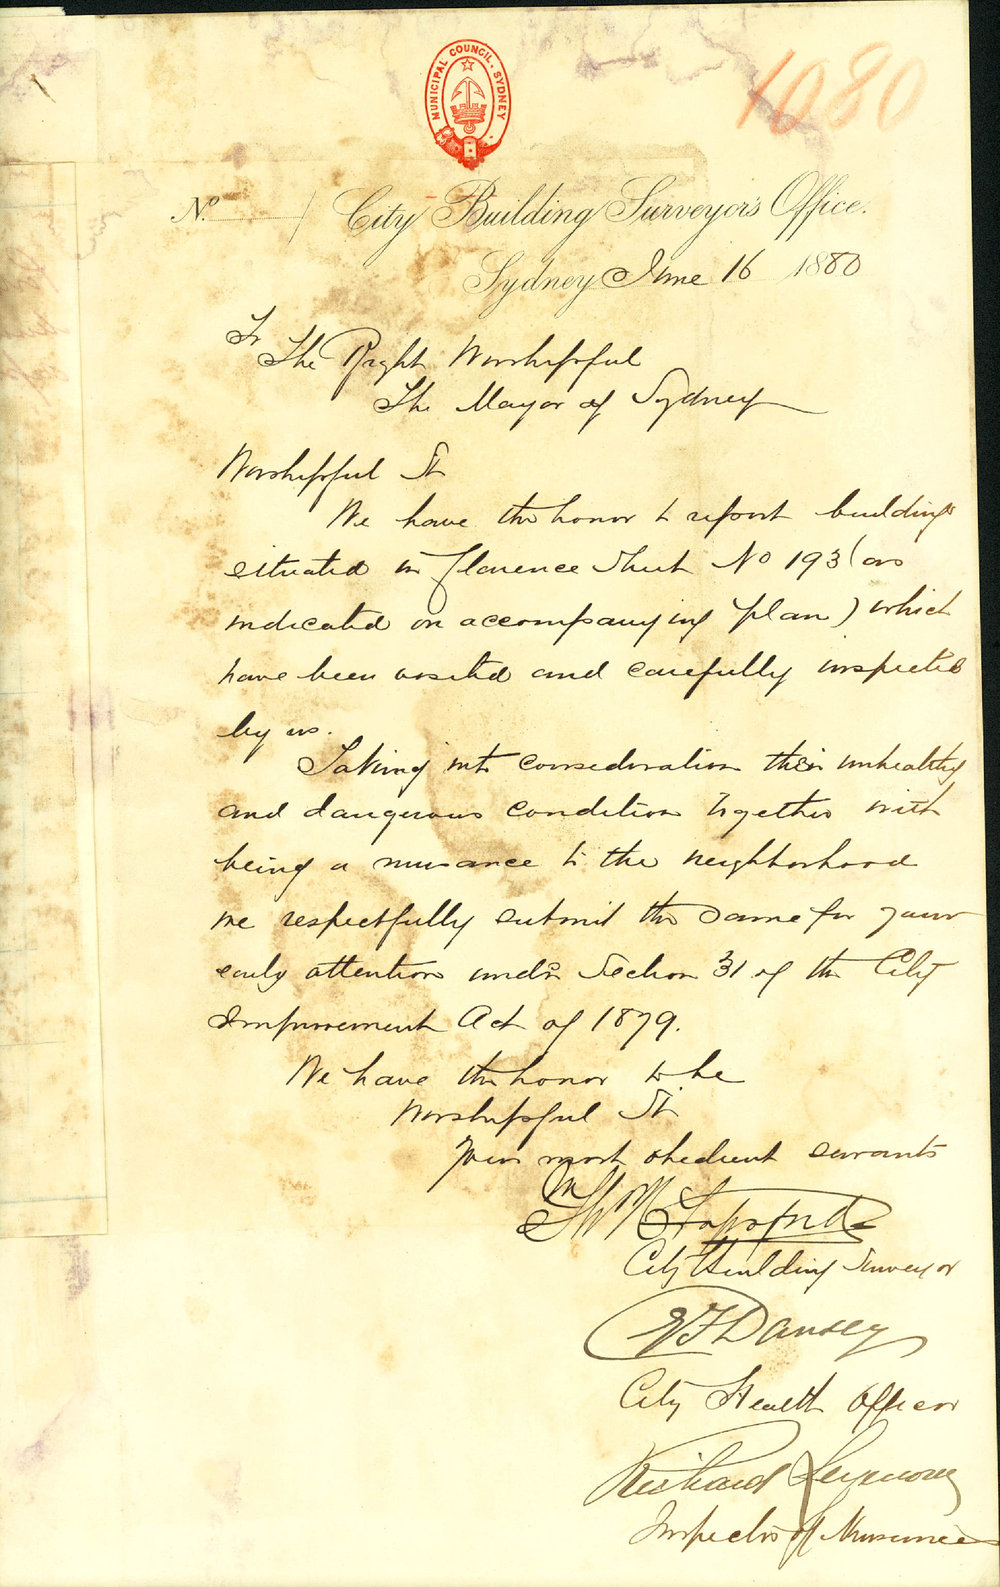 MUNICIPAL COUNCIL · SYDNEY
1080
No. / City Building Surveyor's Office.
Sydney June 16 1880
To
The Right Worshipful
The Mayor of Sydney
Worshipful Sir
We have the honor to report buildings
situated in Florence Street No 193 (as
indicated on accompanying plan) which
have been visited and carefully inspected
by us.
Taking into consideration their unhealthy
and dangerous condition together with
being a nuisance to the neighborhood
we respectfully submit the same for your
early attention under Section 31 of the City
Improvement Act of 1879.
We have the honor to be
Worshipful Sir
Your most obedient servants
City Building Surveyor
Dansey
City Health Officer
Richard Seymour
Inspector of Nuisances